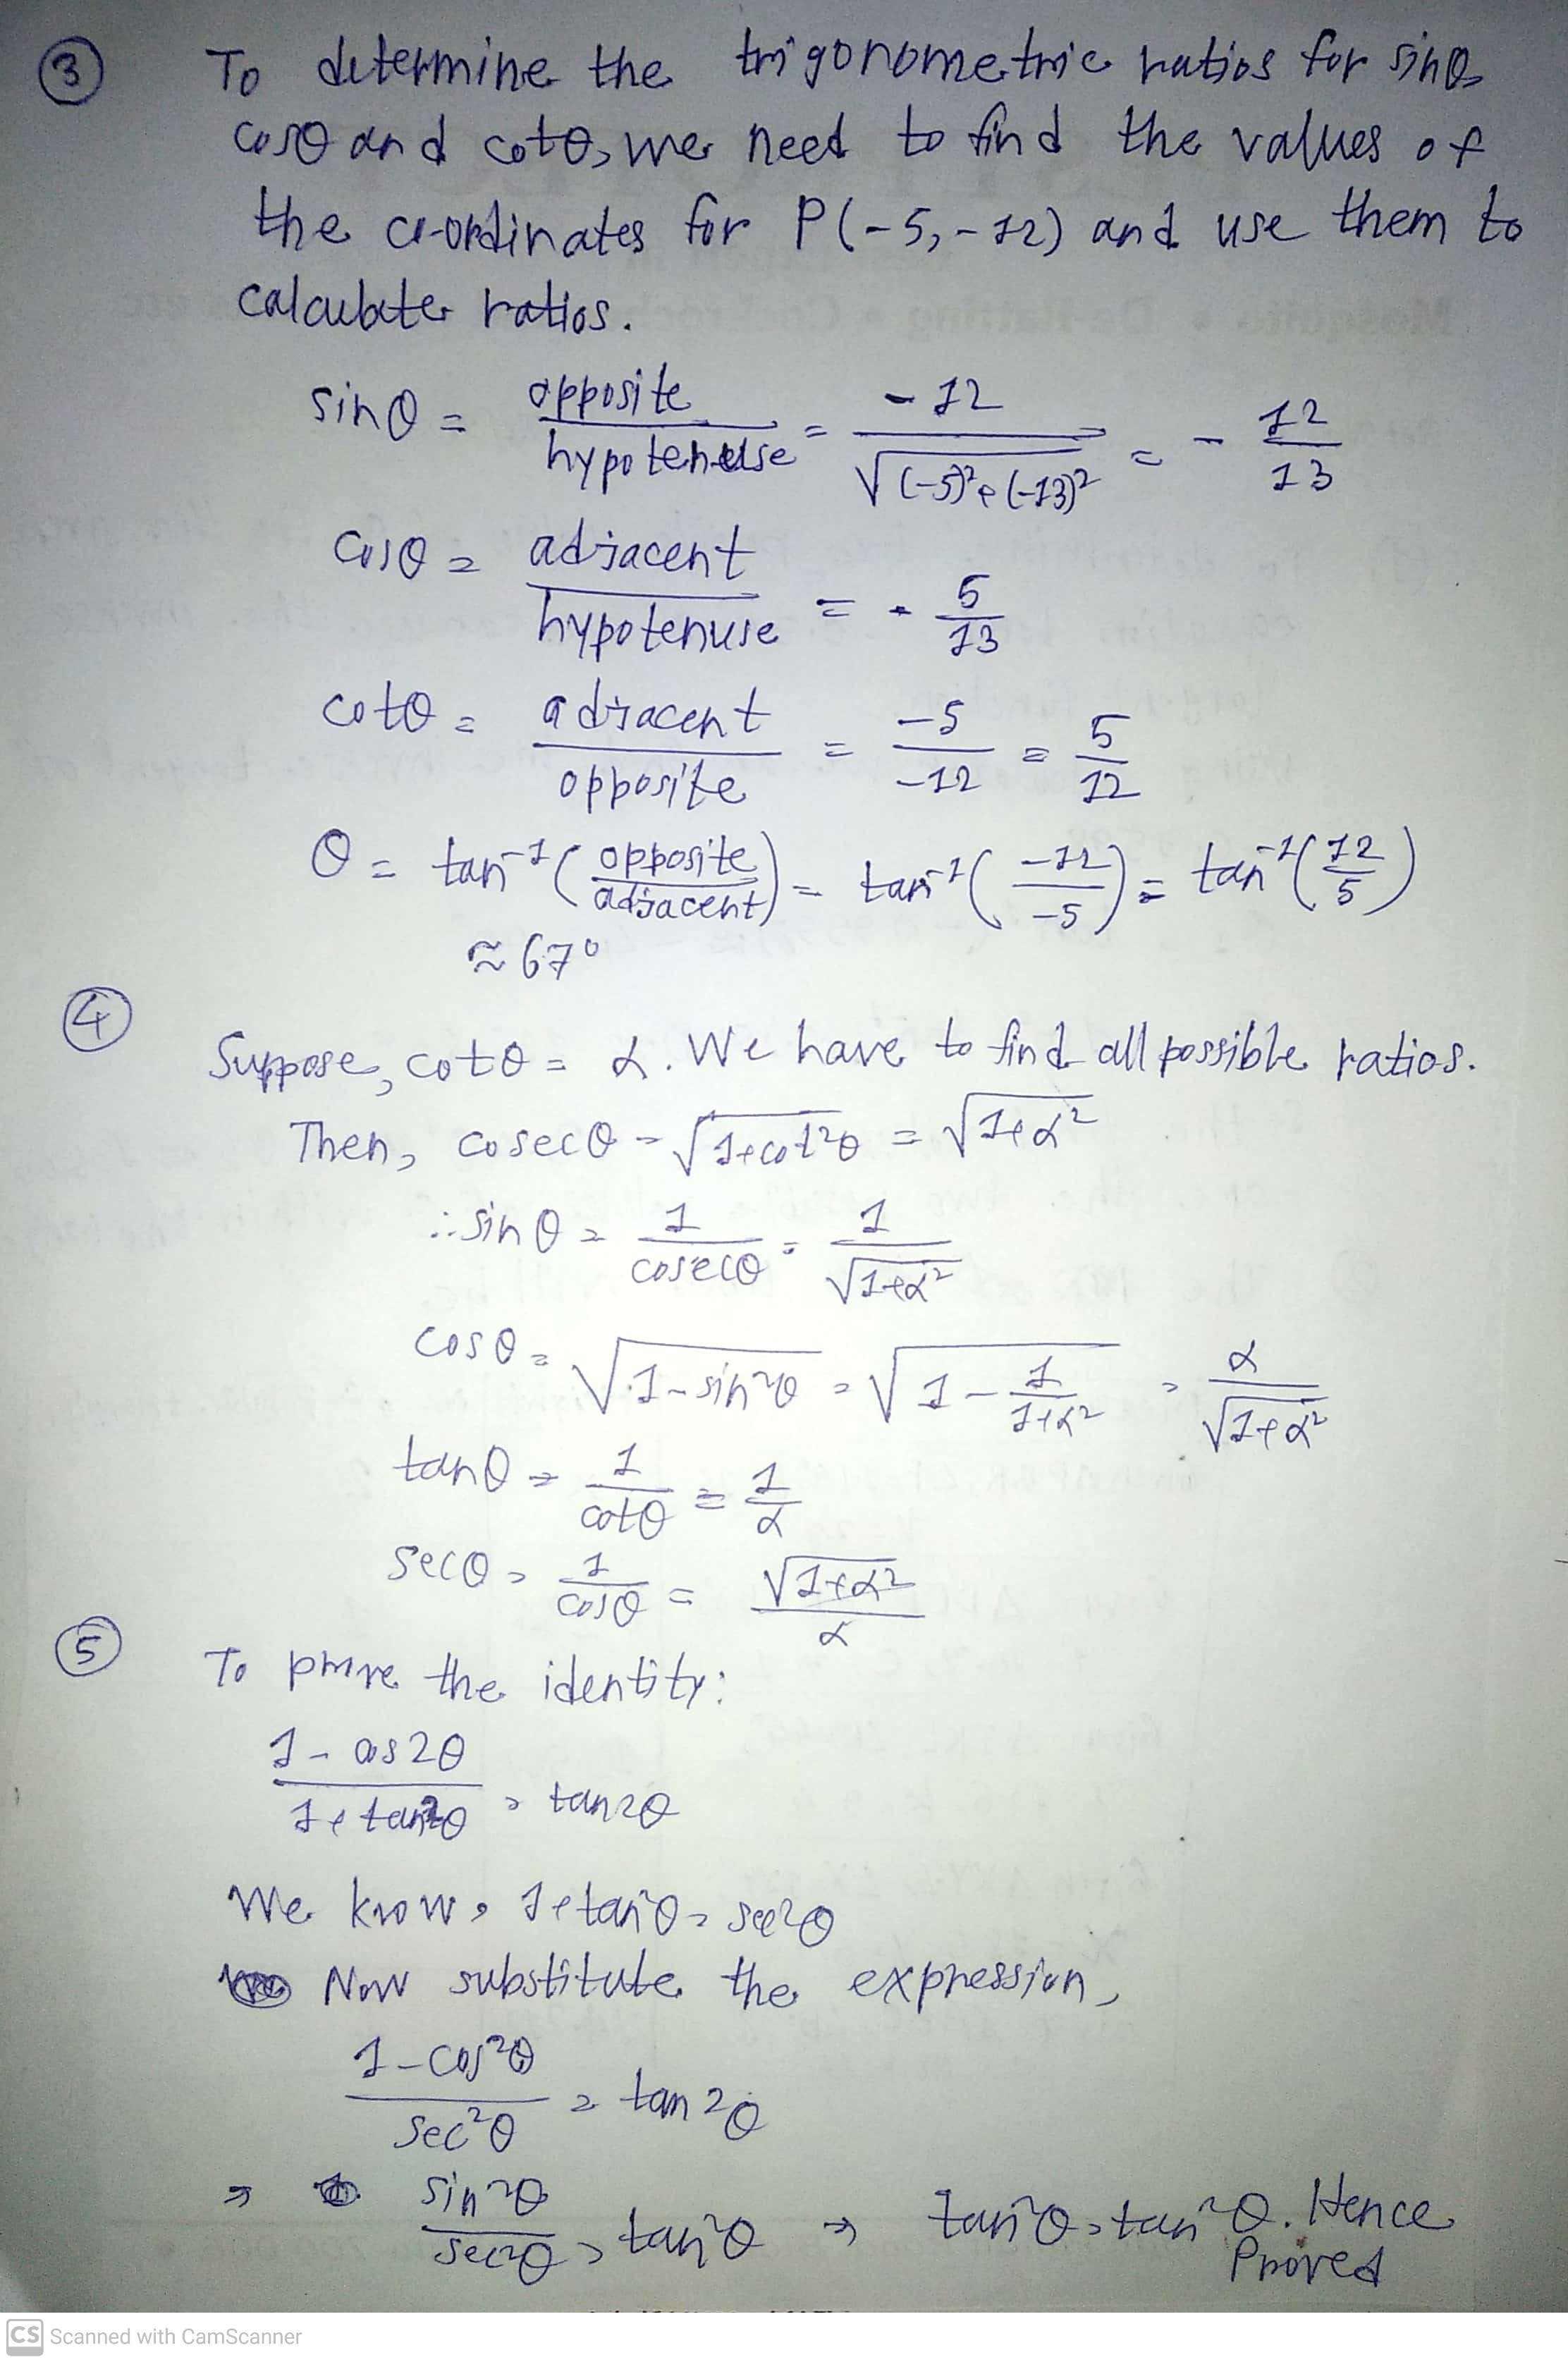 ③ To determine the trigonometric ratios for sinθ,
cosθ and cotθ, we need to find the values of
the co-ordinates for P(-5,-12) and use them to
calculate ratios.
sinθ = opposite/hypotenuse = -12/√((-5)²+(-13)²) = -12/13
cosθ = adjacent/hypotenuse = -5/13
cotθ = adjacent/opposite = -5/-12 = 5/12
θ = tan⁻¹(opposite/adjacent) = tan⁻¹(-12/-5) = tan⁻¹(12/5)
≈ 67°
④ Suppose, cotθ = α. We have to find all possible ratios.
Then, cosecθ = √(1+cot²θ) = √(1+α²)
∴ sinθ = 1/cosecθ = 1/√(1+α²)
cosθ = √(1-sin²θ) = √(1-1/(1+α²)) = α/√(1+α²)
tanθ = 1/cotθ = 1/α
secθ = 1/cosθ = √(1+α²)/α
⑤ To prove the identity:
(1-cos2θ)/(1+tan²θ) = tan2θ
We know, 1+tan²θ = sec²θ
Now substitute the expression,
(1-cos²θ)/sec²θ = tan2θ
⇒ sin²θ/sec²θ = tan²θ ⇒ tan²θ = tan²θ. Hence
Proved
CS Scanned with CamScanner